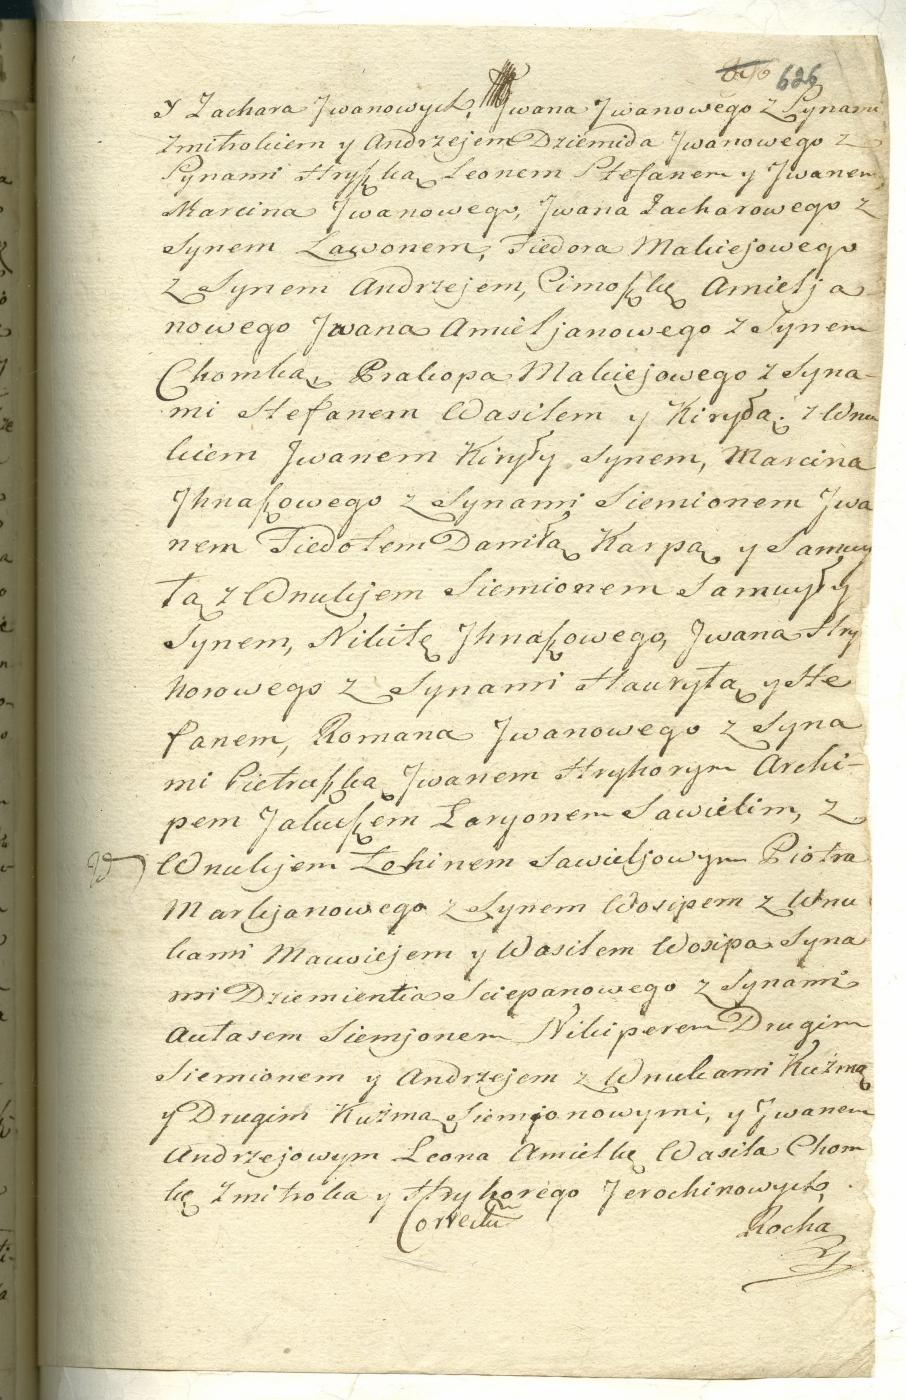 626
y Zachara Jwanowych, Jwana Jwanowego z Synami
Zmitrokiem y Andrzejem Dziemida Jwanowego z
Synami Hryszką Leonem Stefanem y Jwanem
Marcina Jwanowego, Jwana Zacharowego z
Synem Ławonem, Fiedora Makiejowego
z Synem Andrzejem, Cimoszkę Amielja
nowego Jwana Amieljanowego z Synem
Chomką, Prakopa Makiejowego z Syna-
mi Stefanem Wasilem y Kiryłą z Wnu
kiem Jwanem Kiryły Synem, Marcina
Jhnaszowego z Synami Siemionem Jwa
nem Fiedotem Daniłą Karpą y Samuy
łą z Wnukjem Siemionem Samuyły
Synem, Nikitę Jhnaszowego, Jwana Hry
horowego z Synami Hauryłą y Ste
fanem, Romana Jwanowego z Syna
mi Pietruszką Jwanem Hryhorym Archi-
pem Jakuszem Łaryonem Sawielim, z
Wnukjem Łohinem Sawieljowym Piotra
Markjanowego z Synem Wosipem z Wnu
kami Mawiejem y Wasilem Wosipa Syna
mi Dziemientia Sciepanowego z Synami
Autasem Siemjonem Nikiperem Drugim
Siemionem y Andrzejem z Wnukami Kuźmą
y Drugim Kuźmą Siemjonowymi, y Jwanem
Andrzejowym Leona Amielkę Wasila Chom
kę Zmitróka y Hryhorego Jerochinowych,
Correctum
Rocha